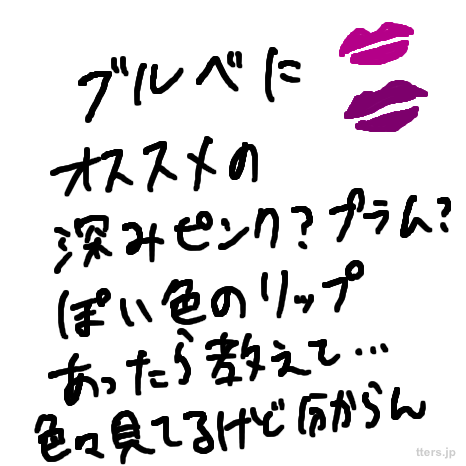 ブルベに
オススメの
深みピンク?プラム?
ぽい色のリップ
あったら教えて...
色々見てるけど分からん
tters.jp